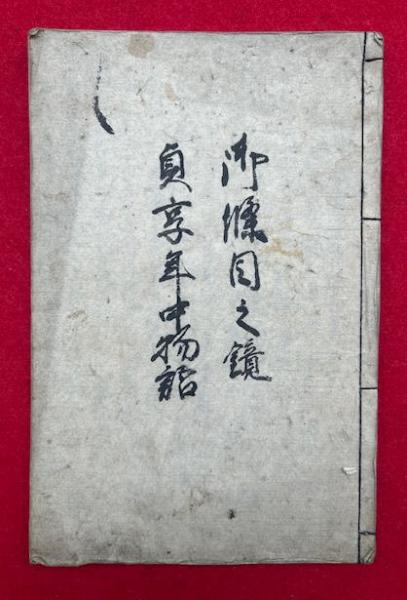 御條目之鏡
貞享年中物語